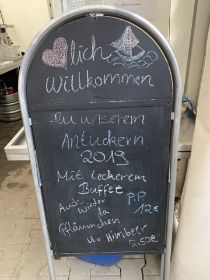 lich
Willkommen
zu unserem
Antuckern
2019
Mit leckerem
Buffet
P.P
Auch wieder
12€
da
Pfläumchen
u. Himbeer